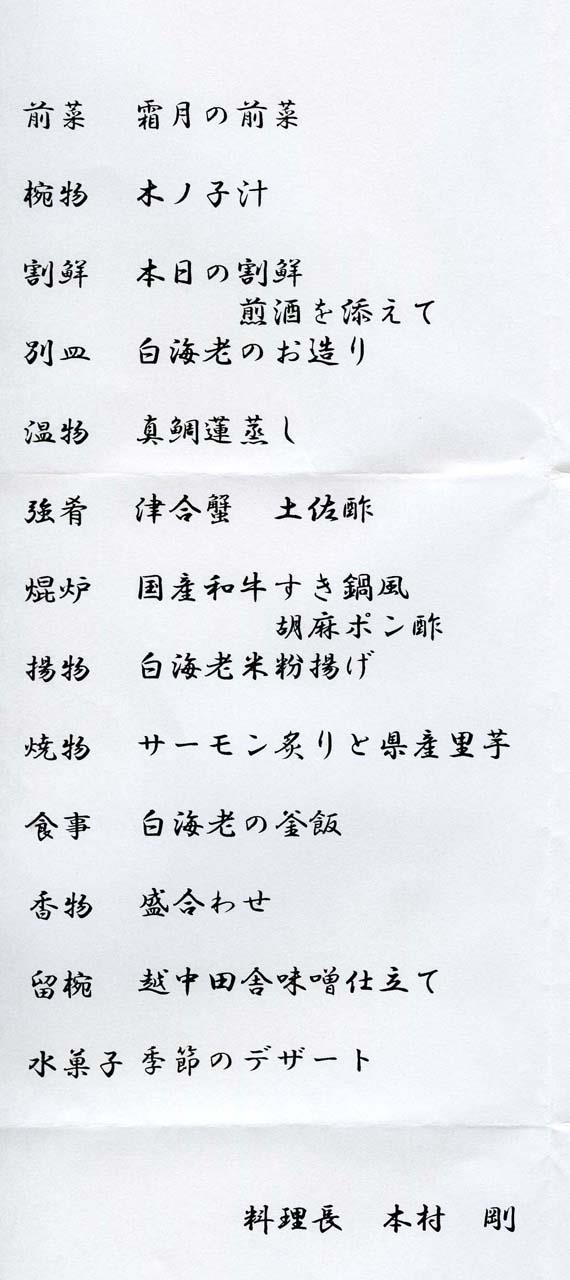 前菜　霜月の前菜
椀物　木ノ子汁
割鮮　本日の割鮮
煎酒を添えて
別皿　白海老のお造り
温物　真鯛蓮蒸し
強肴　津合蟹　土佐酢
焜炉　国産和牛すき鍋風
胡麻ポン酢
揚物　白海老米粉揚げ
焼物　サーモン炙りと県産里芋
食事　白海老の釜飯
香物　盛合わせ
留椀　越中田舎味噌仕立て
水菓子　季節のデザート
料理長　本村　剛